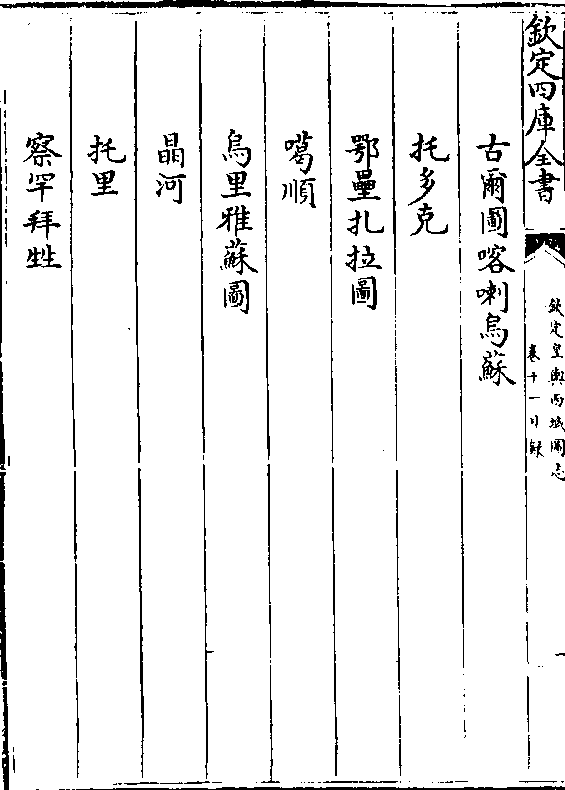 欽定四庫全書
欽定皇輿西域圖志
卷十一目錄
一
古爾圖喀喇烏蘇
托多克
鄂壘扎拉圖
噶順
烏里雅蘇圖
晶河
托里
察罕拜甡